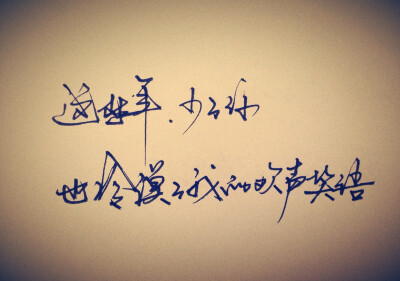 这些年.少了你
也冷漠了我的欢声笑语